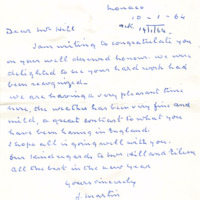 Monaco
10-1-64
ack 14/1/64.
Dear Mr Hill
I am writing to congratulate you
on your well deserved honour. We were
delighted to see your hard work had
been recognized.
We are having a very pleasant time
here, the weather has been very fine and
mild, a great contrast to what you
have been having in England.
I hope all is going well with you.
Our kind regards to Mrs Hill and Eileen
all the best in the New Year
Yours sincerely
J Martin